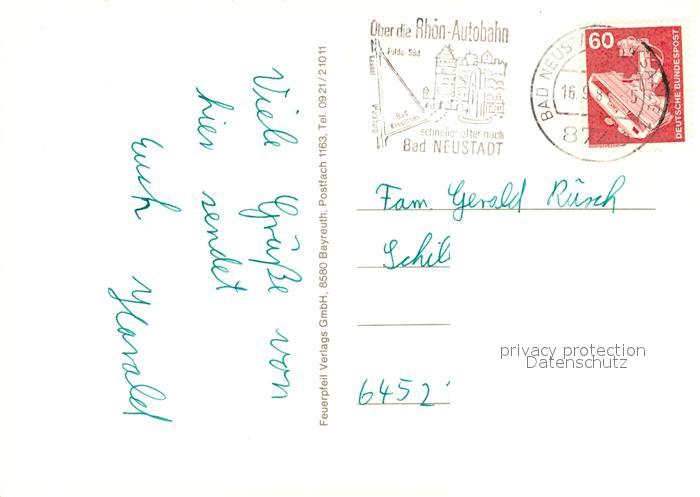 Viele Grüße von
hier sendet
Euch Harald
Feuerpfeil Verlags GmbH, 8580 Bayreuth, Postfach 1163, Tel. 0921/21011
Über die Rhön-Autobahn
Fulda-Süd
Bad Kissingen
schneller öfter nach
Bad NEUSTADT
BAD NEUS
16.9
87
60
DEUTSCHE BUNDESPOST
Fam. Gerald Rüsch
Schil
6452
privacy protection
Datenschutz